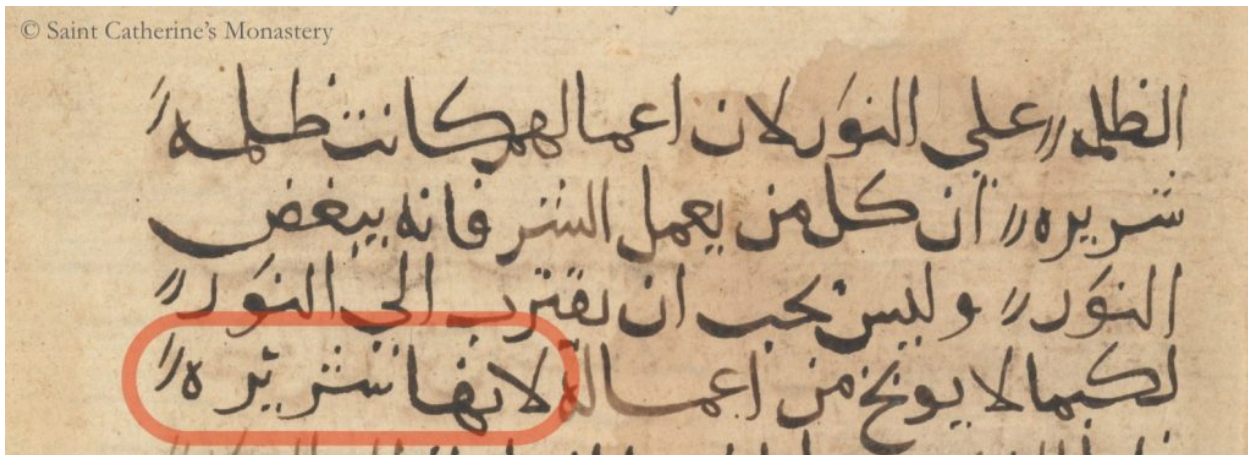 © Saint Catherine's Monastery
الظلمه // علي النور لان اعمالهم كانت ظلمه //
شريره // ان كل من يعمل الشر فانه يبغض
النور // وليس يحب ان يقترب الي النور //
لكيما لا يوبخ من اعماله لانها شريره //